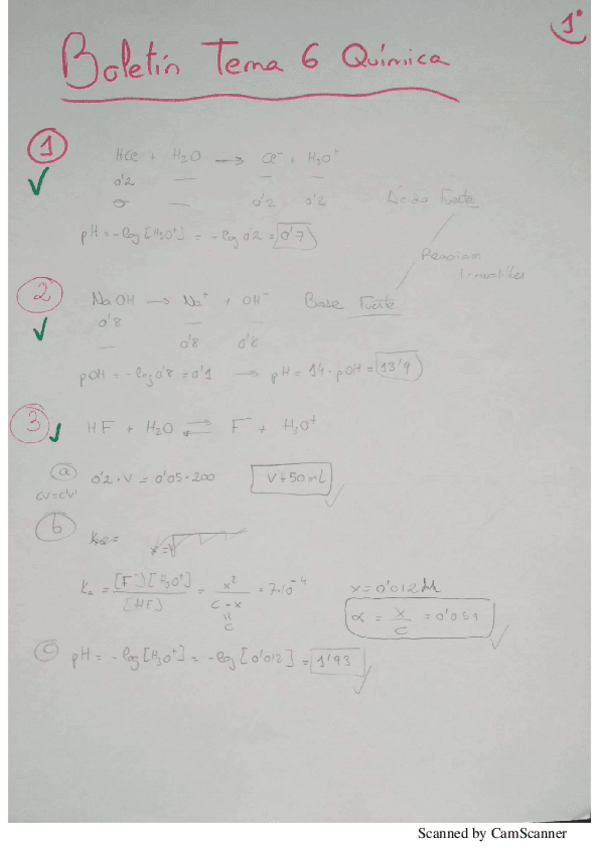 1º
Boletín Tema 6 Química
1
HCl + H₂O → Cl⁻ + H₃O⁺
0'2 — — —
0'2 0'2
Ácido Fuerte
pH = -log [H₃O⁺] = -log 0'2 = 0'7
2
NaOH → Na⁺ + OH⁻ Base Fuerte
0'8 — —
— 0'8 0'8
pOH = -log 0'8 = 0'1 → pH = 14 - pOH = 13'9
3
HF + H₂O ⇌ F⁻ + H₃O⁺
a 0'2 · V = 0'05 · 200 V = 50 mL
cV = c'V'
b
Ka = [F⁻][H₃O⁺] / [HF] = x² / c - x = 7·10⁻⁴ x = 0'012 M
c
α = x / c =
c pH = -log [H₃O⁺] = -log [0'012] = 1'93
Scanned by CamScanner